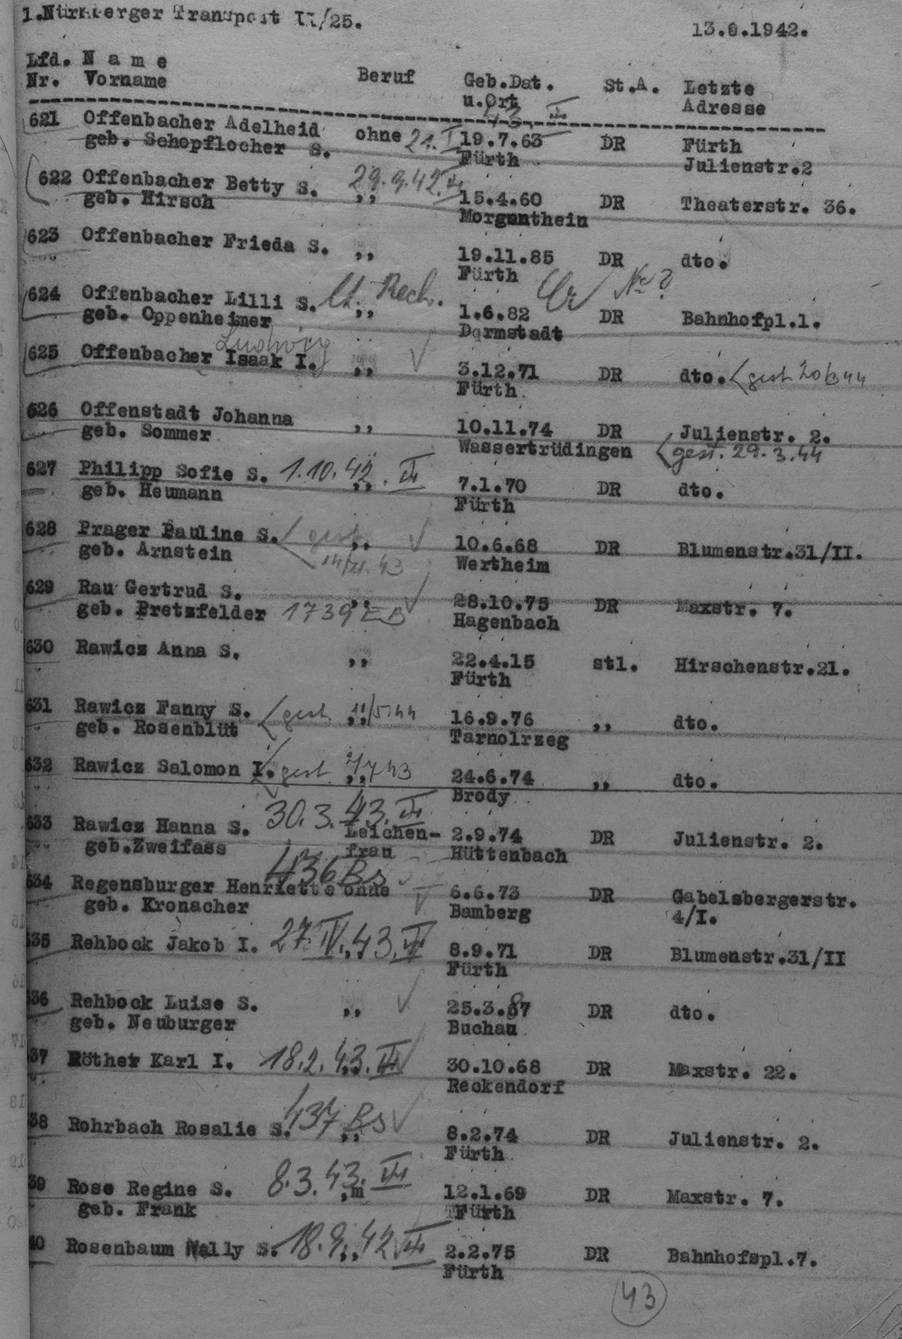 1.Nürnberger Transport II/25.
13.9.1942.
Lfd. N a m e Beruf Geb.Dat. St.A. Letzte
Nr. Vorname u.Ort Adresse
621 Offenbacher Adelheid ohne 19.7.63 DR Fürth
geb. Schopflocher S. Fürth Julienstr.2
622 Offenbacher Betty S. 29.9.42 ,, 15.4.60 DR Theaterstr. 36.
geb. Hirsch Morgenthein
623 Offenbacher Frieda S. ,, 19.11.85 DR dto.
Fürth
624 Offenbacher Lilli S. lt. Rech. ,, 1.6.82 DR Bahnhofpl.1.
geb. Oppenheimer Darmstadt
Ludwig
625 Offenbacher Isaak I. ,, 3.12.71 DR dto. gest
Fürth
626 Offenstadt Johanna ,, 10.11.74 DR Julienstr. 2.
geb. Sommer Wassertrüdingen gest. 29.3.44
627 Philipp Sofie S. 1.10.42. III ,, 7.1.70 DR dto.
geb. Heumann Fürth
628 Prager Pauline S. gest. ,, 10.6.68 DR Blumenstr.31/II.
geb. Arnstein Wertheim
629 Rau Gertrud S. ,, 28.10.75 DR Maxstr. 7.
geb. Pretzfelder 1739 Hagenbach
630 Rawicz Anna S. ,, 22.4.15 stl. Hirschenstr.21.
Fürth
631 Rawicz Fanny S. gest. 11/5.44 ,, 16.9.76 ,, dto.
geb. Rosenblüt Tarnolrzeg
632 Rawicz Salomon I. gest. ,, 24.6.74 ,, dto.
Brody
633 Rawicz Hanna S. 30.3.43. III Leichen- 2.9.74 DR Julienstr. 2.
geb.Zweifass frau Hüttenbach
436 Bs
634 Regensburger Henriette ohne 6.6.73 DR Gabelsbergerstr.
geb. Kronacher Bamberg 4/I.
635 Rehbock Jakob I. 27.IV.43. III 8.9.71 DR Blumenstr.31/II
Fürth
636 Rehbock Luise S. ,, 25.3.87 DR dto.
geb. Neuburger Buchau
37 Röther Karl I. 18.2.43. III 30.10.68 DR Maxstr. 22.
Reckendorf
38 Rohrbach Rosalie S. 437 Bs ,, 8.2.74 DR Julienstr. 2.
Fürth
39 Rose Regine S. 8.3.43. III 12.1.69 DR Maxstr. 7.
geb. Frank Fürth
40 Rosenbaum Nally S. 18.9.42 III ,, 2.2.75 DR Bahnhofspl.7.
Fürth
43